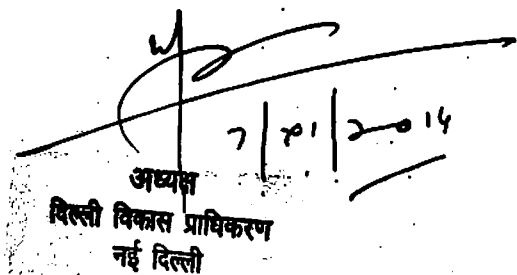 7/01/2014
अध्यक्ष
दिल्ली विकास प्राधिकरण
नई दिल्ली